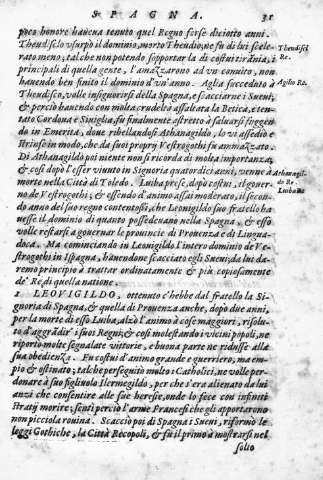 SPAGNA. 31
poco honore haueua tenuto quel Regno forse diciotto anni.
Theudisclo vsurpò il dominio, morto Theudio, ne fu di lui scele-
rato meno, tal che non potendo sopportar la di costui tirãnia, i
principali di quella gente, l'amazzarono ad vn conuito, non
hauendo ben finito il dominio d'vn'anno. Agila succeduto à
Theudisclo, volle insignorirsi della Spagna, e scacciarne i Sueui,
& perciò hauendo con molta crudeltà assaltata la Betica, e ten-
tato Cordoua e Siuiglia, fu finalmente astretto à saluarsi fuggen
do in Emerita, doue ribellandosi Athanagildo, lo vi assediò e
strinse in modo, che da suoi propry Vestrogothi fu ammazzato.
Di Athanagildo poi niente non si ricorda di molta importanza,
& così dopo l'esser viuuto in Signoria quatordici anni, venne à
morte nella Città di Toledo. Luiba prese, dopo costui, il gouer-
no de Vestrogothi, & essendo d'animo assai moderato, il secon-
do anno del suo regno contentossi, che Leonigildo suo fratello ha
uesse il dominio di quanto possedeuano nella Spagna, & esso
volle restarsi a gouernar le prouincie di Prouenza e di Lingua-
doca. Ma cominciando in Leouigildo l'intero dominio de Ve-
strogothi in Ispagna, hauendone scacciato egli Sueui, da lui da-
remo principio à trattar ordinatamente & più copiosamente
de' Re di quella natione.
1 LEOVIGILDO, ottenuto c'hebbe dal fratello la Si-
gnoria di Spagna, & quella di Prouenza anche, dopo due anni,
per la morte di esso Luiba, alzò l'animo à cose maggiori, risolu-
to d'aggrãdir i suoi Regni; & così molestando i vicini popoli, ne
riportò molte segnalate vittorie, e buona parte ne ridusse alla
sua obedienza. Fu costui d'animo grande e guerriero, ma em-
pio & ostinato; tal che perseguitò molto i Catholici, ne volle per-
donare à suo figliuolo Ilermegildo, per che s'era alienato da lui
anzi che consentire alle sue heresie, onde lo fece con infiniti
stratij morire; sentì perciò l'arme Francesi che gli apportarono
non picciola rouina. Scacciò poi di Spagna i Sueui, riformò le
leggi Gothiche, la Città Recopoli, & fu il primo à mostrarsi nel
solio
Theudiscl
Re.
Agila Re.
Athanagil-
do Re.
Luiba Re